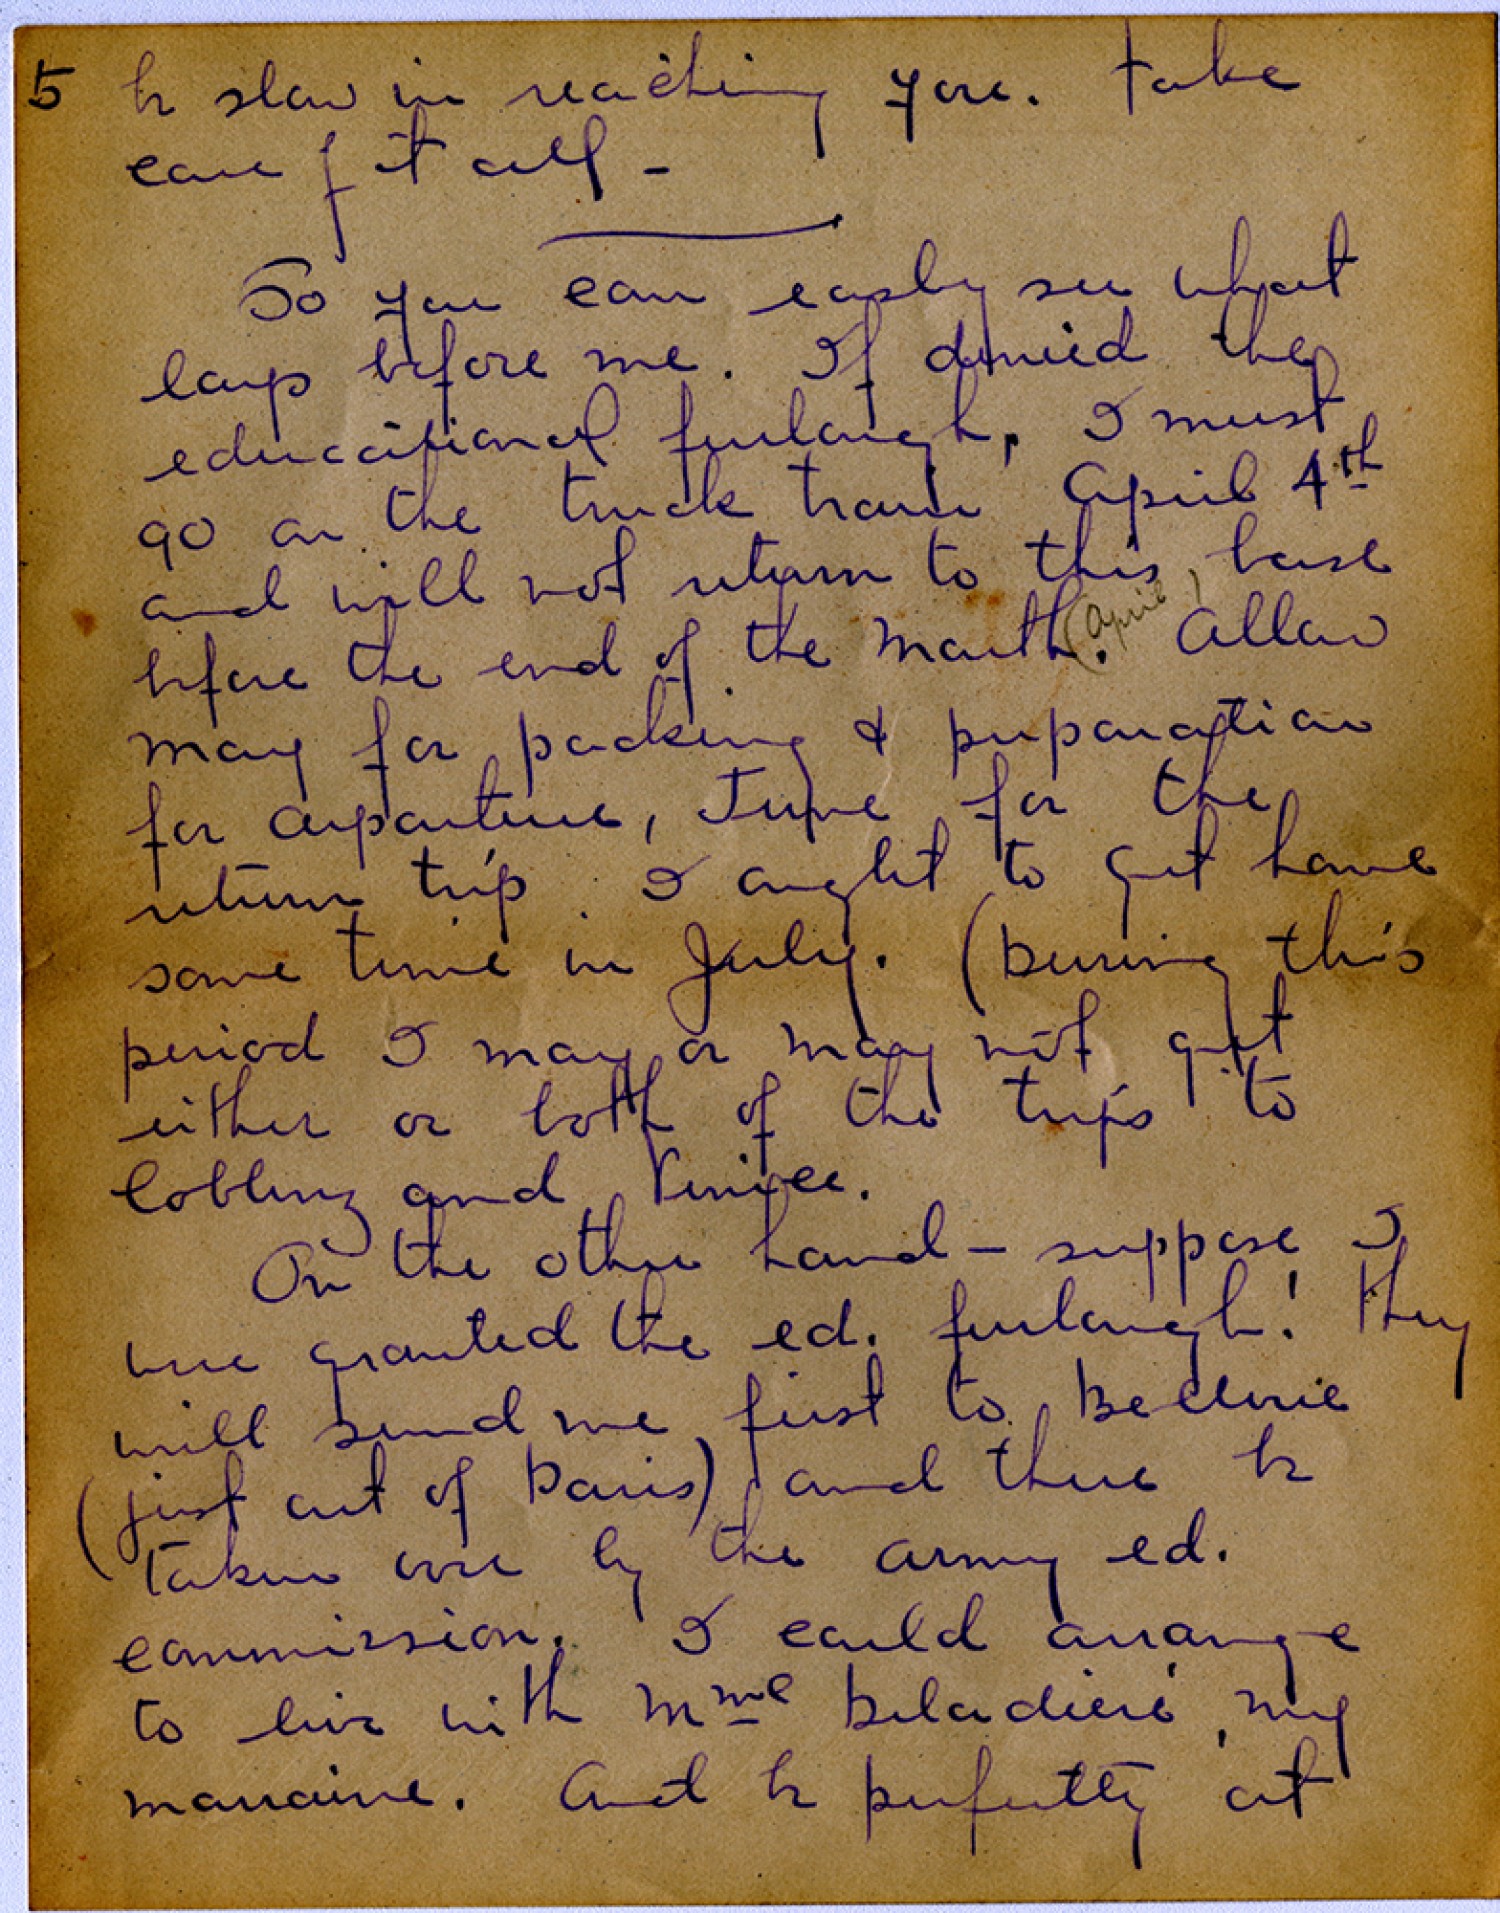 5 be slow in reaching you. Take
care of it all —
So you can easily see what
lays before me. If denied the
educational furlough, I must
go on the truck train April 4th
and will not return to this base
before the end of the month (April). Allow
May for packing & preparation
for departure, June for the
return trip. I ought to get home
some time in July. (During this
period I may or may not get
either or both of the trips to
Coblenz and Venice.
On the other hand — suppose I
were granted the ed. furlough! They
will send me first to Bellevie
(just out of Paris) and there be
taken over by the army ed.
commission. I could arrange
to live with Mme Beladiere, my
marraine. And be perfectly at